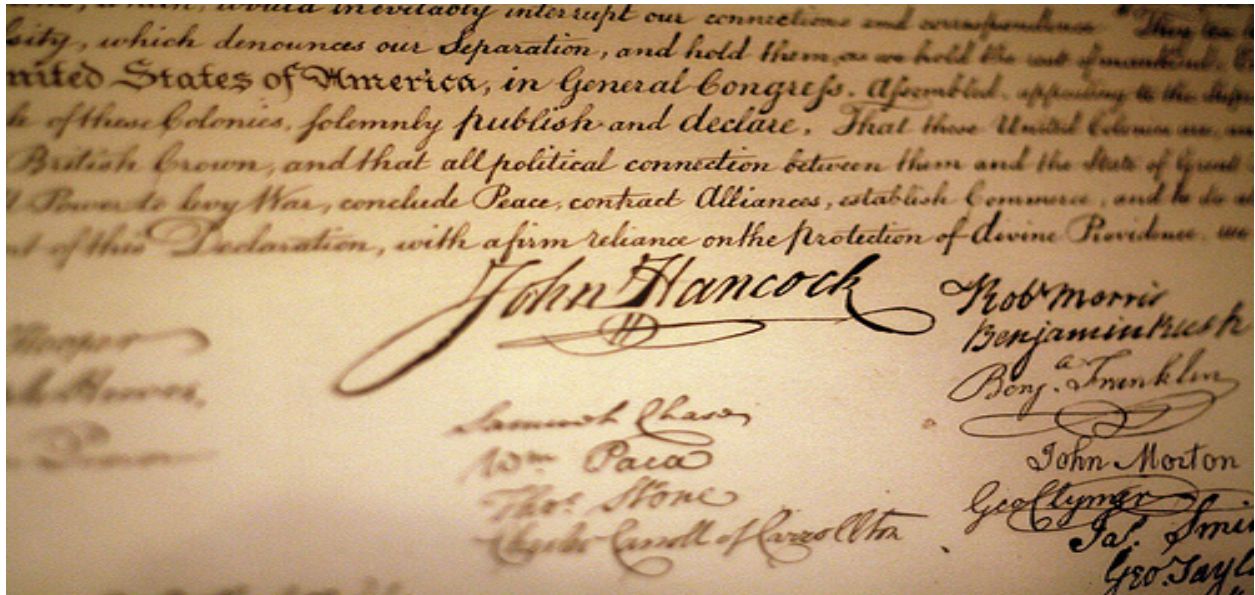 would inevitably interrupt our connections and correspondence
sity, which denounces our Separation, and hold them, as we hold the rest of mankind,
nited States of America, in General Congress, Assembled, appealing to the Supre
of these Colonies, solemnly publish and declare, That these United Colonies are, an
British Crown, and that all political connection between them and the State of Great
Power to levy War, conclude Peace, contract Alliances, establish Commerce, and to do
of this Declaration, with a firm reliance on the protection of divine Providence, we
John Hancock
Hooper
Samuel Chase
Wm Paca
Thos. Stone
Charles Carroll of Carrollton
Robt Morris
Benjamin Rush
Benja. Franklin
John Morton
Geo Clymer
Jas. Smi
Geo. Tayl